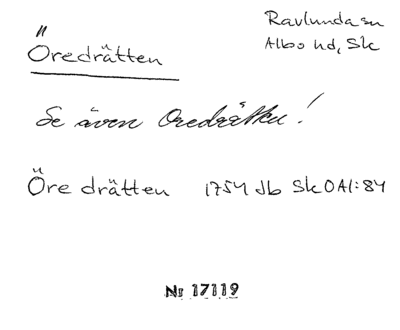 Ravlunda sn
Albo hd, Sk
Öredrätten
Se även Oredrätten!
Öre drätten 1754 Jb Sk O AI:84
Nr 17119